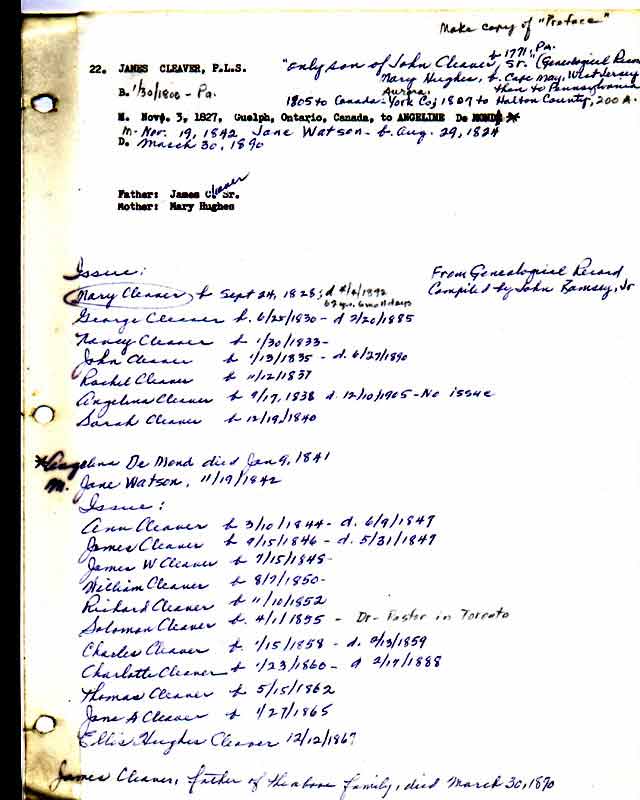 Make copy of "Preface"
22. JAMES CLEAVER, P.L.S.
"only son of John Cleaver, Sr." (Genealogical Record
b 1771, Pa.
B. 1/30/1800 - Pa.
Mary Hughes, b. Cape May, West Jersey
then to Pennsylvania
Aurora
1805 to Canada - York Co; 1807 to Halton County, 200 A.
M. Nov. 3, 1827, Guelph, Ontario, Canada, to ANGELINE De MOND *
M. Nov. 19, 1842 Jane Watson - b. Aug. 29, 1824
D. March 30, 1890
Father: James C. Sr. Cleaver
Mother: Mary Hughes
Issue:
From Genealogical Record
Compiled by John Ramsey, Jr
Mary Cleaver b Sept 24, 1828; d 1892
George Cleaver b. 6/25/1830 - d 2/20/1885
Nancy Cleaver b 1/30/1833 -
John Cleaver b 1/13/1835 - d. 6/27/1890
Rachel Cleaver b 11/12/1837
Angelina Cleaver b 9/17, 1838 d. 12/10/1905 - No issue
Sarah Cleaver b 12/19/1840
*Angelina De Mond died Jan 9, 1841
M. Jane Watson, 11/19/1842
Issue:
Ann Cleaver b 3/10/1844 - d. 6/9/1847
James Cleaver b 9/15/1846 - d. 5/31/1847
James W Cleaver b 7/15/1848 -
William Cleaver b 8/7/1850 -
Richard Cleaver b 11/10/1852
Solomon Cleaver b. 4/1/1855 - Dr - Pastor in Toronto
Charles Cleaver b 1/15/1858 - d. 2/13/1859
Charlotte Cleaver b 1/23/1860 - d 2/17/1888
Thomas Cleaver b 5/15/1862
Jane A Cleaver b 1/27/1865
Ellis Hughes Cleaver 12/12/1867
James Cleaver, father of the above family, died March 30, 1890